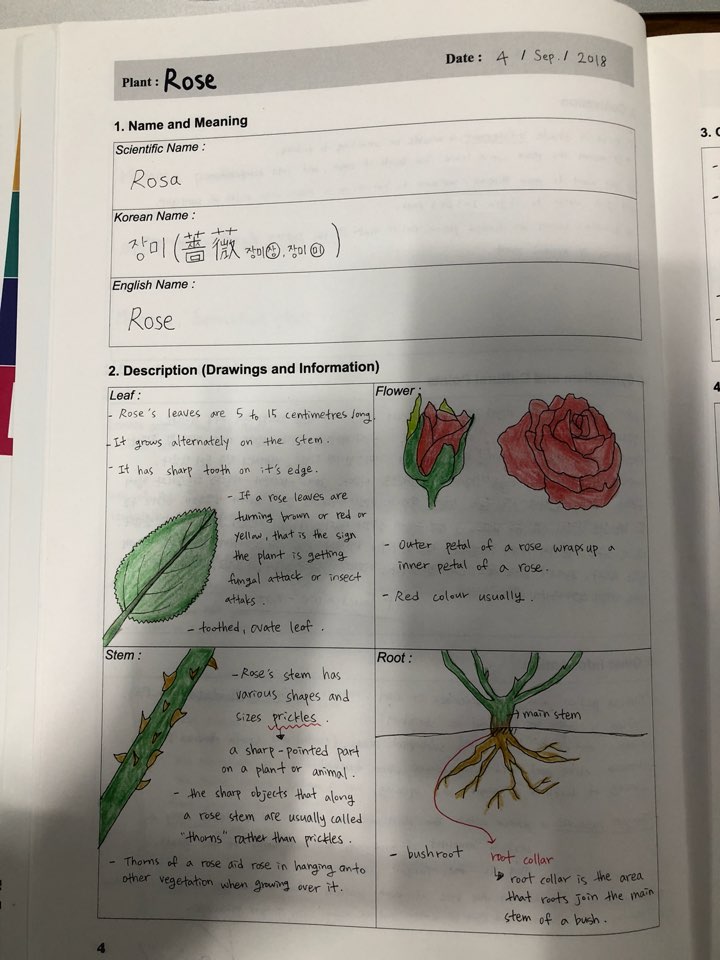 Plant : Rose
Date : 4 / Sep. / 2018
1. Name and Meaning
Scientific Name :
Rosa
Korean Name :
장미 (薔薇 장미장, 장미 미)
English Name :
Rose
2. Description (Drawings and Information)
Leaf :
- Rose's leaves are 5 to 15 centimetres long.
- It grows alternately on the stem.
- It has sharp tooth on it's edge.
- If a rose leaves are
turning brown or red or
yellow, that is the sign
the plant is getting
fungal attack or insect
attaks.
- toothed, ovate leaf.
Flower :
- Outer petal of a rose wraps up a
inner petal of a rose.
- Red colour usually.
Stem :
- Rose's stem has
various shapes and
sizes prickles.
a sharp-pointed part
on a plant or animal.
- the sharp objects that along
a rose stem are usually called
"thorns" rather than prickles.
- Thorns of a rose aid rose in hanging onto
other vegetation when growing over it.
Root :
main stem
- bushroot
root collar
root collar is the area
that roots join the main
stem of a bush.
4
3.
4